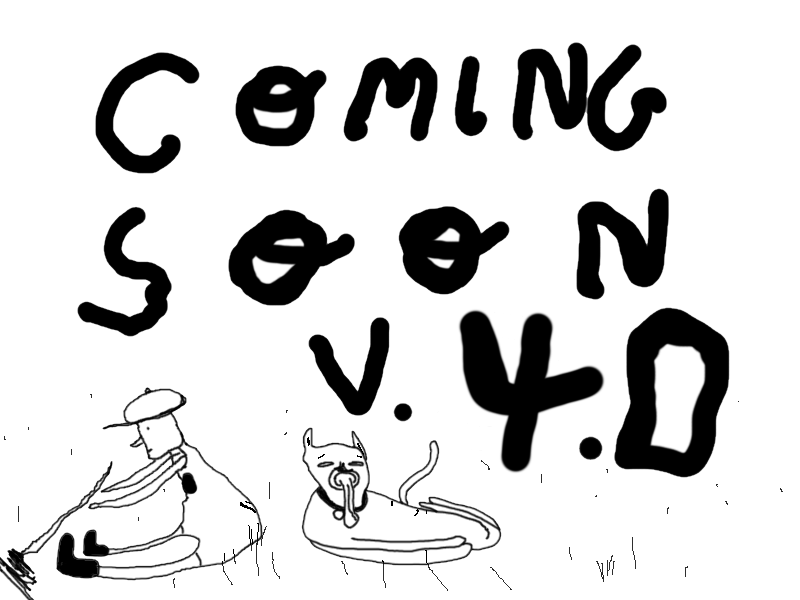 COMING
SOON
V. 4.0